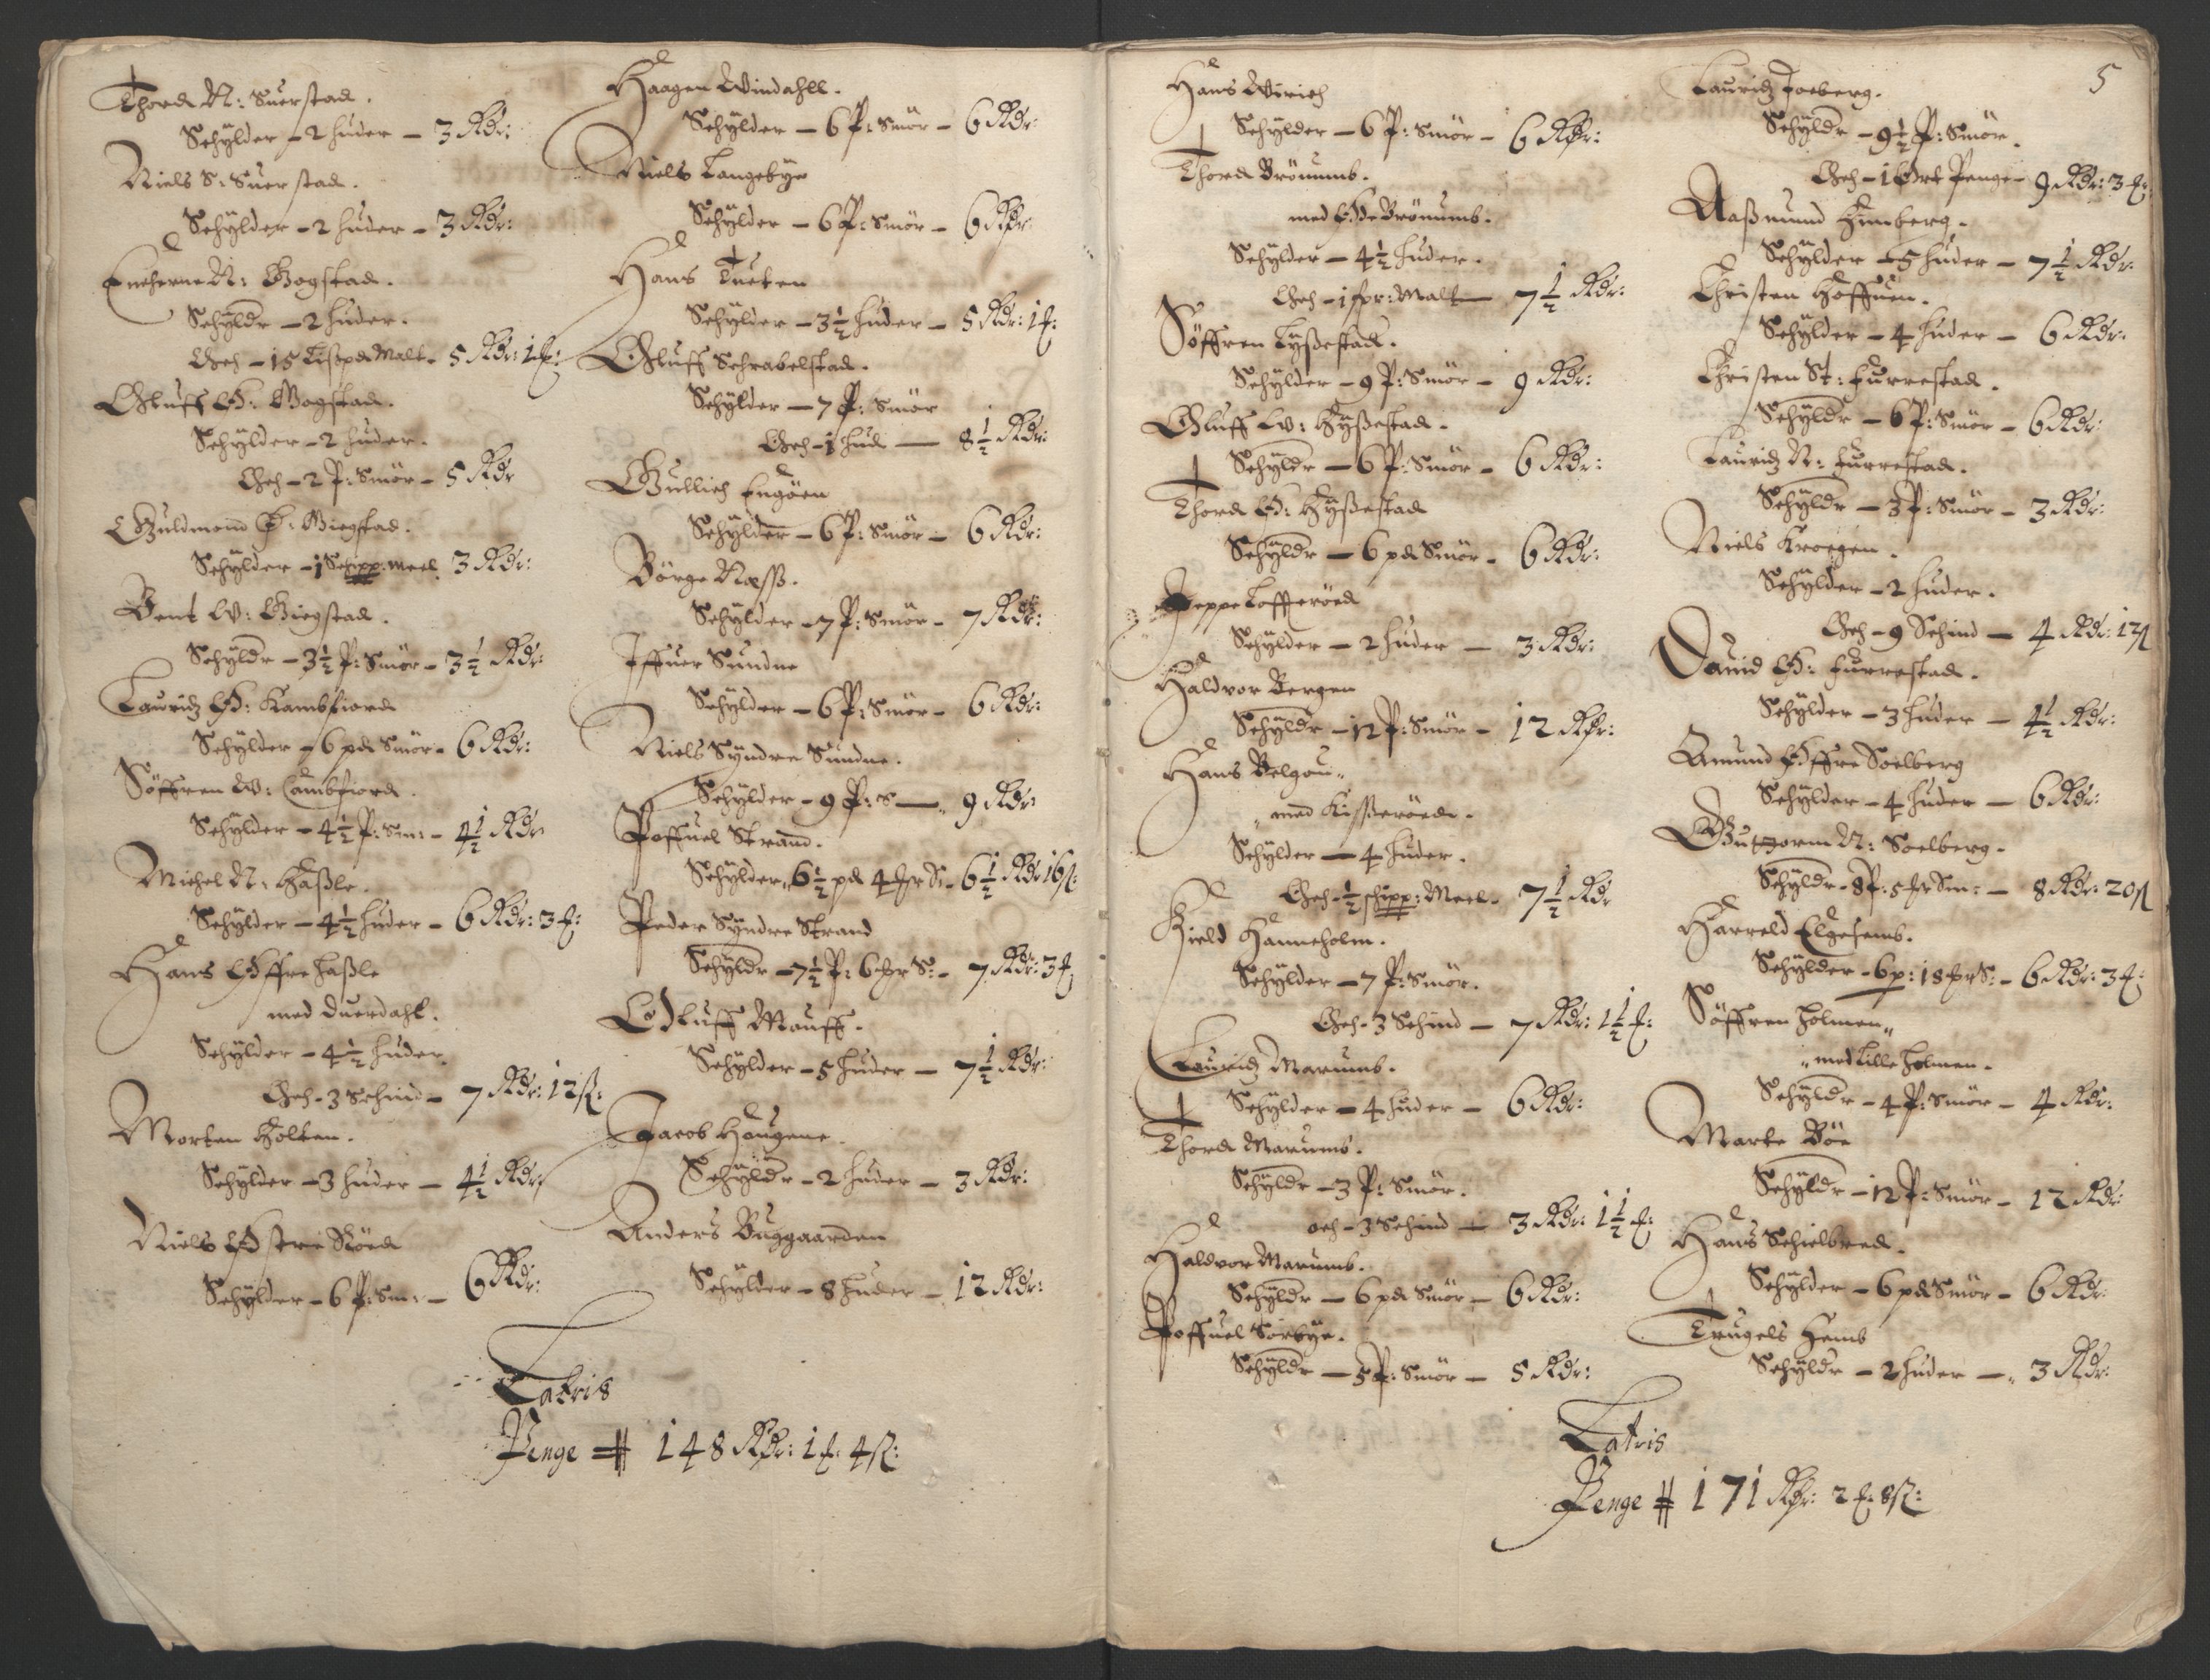 Thord N: Suerstad.
Schylder - 2 huder - 3 Rdr:
Niels S: Suerstad.
Schylder - 2 huder - 3 Rdr:
N: Gogstad.
Schyldr - 2 huder.
Och - 15 Lispd Malt - 5 Rdr: 1 ℔:
Oluff Ø: Gogstad.
Schylder - 2 huder.
Och - 2 P: Smör - 5 Rdr
Guldmond Ø: Giegstad.
Schylder - 1 Schipp: meel 3 Rdr:
Bent W: Giegstad.
Schyldr - 3½ P: Smör - 3½ Rdr:
Lauridz Ø: Kambfiord
Schylder - 6 pd Smör - 6 Rdr:
Söffren W: Cambfiord.
Schylder - 4½ P: Sm: - 4½ Rdr
Michel N: Haßle.
Schylder - 4½ huder - 6 Rdr: 3 ℔:
Hans Øffre haßle
med duerdahl.
Schylder - 4½ huder
Och - 3 Schind - 7 Rdr: 12 ß:
Morten Holten.
Schylder - 3 huder - 4½ Rdr
Niels Østre Röed
Schylder - 6 P: Sm: - 6 Rdr:
Haagen Windahll.
Schylder - 6 P: Smör - 6 Rdr:
Niels Langebye
Schylder - 6 P: Smör - 6 Rdr
Hans Tueten
Schylder - 3½ huder - 5 Rdr: 1 ℔:
Oluff Schrabelstad.
Schylder - 7 P: Smör
Och - 1 hud - 8½ Rdr:
Gullich Engöen
Schylder - 6 P: Smör - 6 Rdr:
Börge Næss.
Schylder - 7 P: Smör - 7 Rdr:
Iffuer Sundne
Schylder - 6 P: Smör - 6 Rdr:
Niels Syndre Sundne.
Schylder - 9 P: S - 9 Rdr:
Poffuel Strand.
Schylder 6½ pd 4 mr S: 6½ Rdr 16 ß:
Peder Syndre Strand
Schyldr - 7½ P: 6 mr S: - 7 Rdr: 3 ℔
Oluff Mauff.
Schylder - 5 huder - 7½ Rdr:
Jacob Haugene.
Schyldr - 2 huder - 3 Rdr:
Anders Buggaarden
Schylder - 8 huder - 12 Rdr:
Latris
Penge # 148 Rdr: 1 ℔: 4 ß:
5
Hans Wirich
Schylder - 6 P: Smör - 6 Rdr:
Thord Brönumb.
med Øde Brönumb.
Schylder - 4½ huder.
Och - 1 spr: Malt - 7½ Rdr:
Söffren Lyßestad.
Schylder - 9 P: Smör - 9 Rdr:
Oluff W: Hyßestad.
Schyldr - 6 P: Smör - 6 Rdr:
Thord Ø: Hyßestad
Schyldr - 6 pd Smör - 6 Rdr:
Jeppe Lofferöed
Schylder - 2 huder - 3 Rdr:
Haldvor Bergen
Schyldr - 12 P: Smör - 12 Rdr:
Hans Belgou
med Kißeröed.
Schylder - 4 huder.
Och - ½ schipp: Meel - 7½ Rdr
Kield Hanneholm.
Schylder - 7 P: Smör.
Och - 3 Schind - 7 Rdr: 1½ ℔:
Lauridz Marumb.
Schylder - 4 huder - 6 Rdr:
Thord Marumb.
Schyldr - 3 P: Smör.
och - 3 Schind - 3 Rdr: 1½ ℔:
Haldvor Marumb.
Schyldr - 6 pd Smör - 6 Rdr:
Poffuel Sörbye.
Schyldr - 5 P: Smör - 5 Rdr:
Lauridz Joeberg.
Schyldr - 9½ P: Smör.
Och - 1 Ort Penge - 9 Rdr: 3 ℔:
Aaßmund Himberg.
Schylder - 5 huder - 7½ Rdr:
Christen Hoffuen.
Schylder - 4 huder - 6 Rdr:
Christen St: Furrestad.
Schyldr - 6 P: Smör - 6 Rdr:
Lauridz N: Furrestad.
Schyldr - 3 P: Smör - 3 Rdr:
Niels Kroegen.
Schylder - 2 huder.
Och - 9 Schind - 4 Rdr: 12 ß
Dauid Ø: Furrestad.
Schylder - 3 huder - 4½ Rdr:
Amund Øffre Soelberg
Schylder - 4 huder - 6 Rdr:
Guttorm N: Soelberg.
Schyldr - 8 P: 5 mr Sm: - 8 Rdr: 20 ß
Harreld Elgesemb.
Schylder - 6 p: 18 mr S: - 6 Rdr: 3 ℔:
Söffren Holmen
med Lille Holmen.
Schyldr - 4 P: Smör - 4 Rdr:
Marte Böe
Schyldr - 12 P: Smör - 12 Rdr
Hans Schielbred.
Schylder - 6 pd Smör - 6 Rdr:
Trugels Hemb
Schyldr - 2 huder - 3 Rdr:
Latris
Penge # 171 Rdr: 2 ℔: 8 ß: